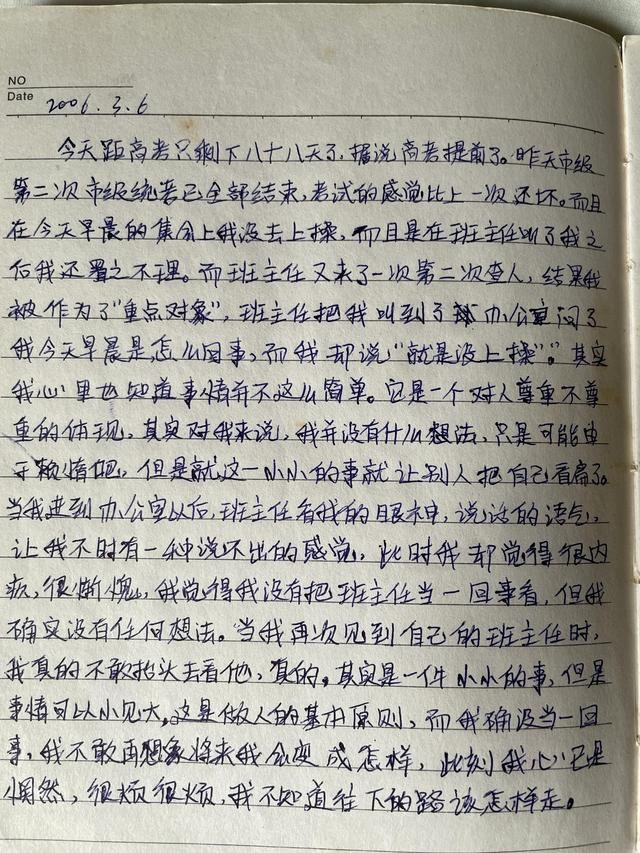 NO
Date 2006.3.6
今天距高考只剩下八十八天了,据说高考提前了。昨天市级
第二次市级统考已全部结束,考试的感觉比上一次还坏。而且
在今天早晨的集会上我没去上操,而且是在班主任叫了我之
后我还置之不理。而班主任又来了一次第二次查人,结果我
被作为了"重点对象",班主任把我叫到了办公室问了
我今天早晨是怎么回事,而我却说"就是没上操"。其实
我心里也知道事情并不这么简单。它是一个对人尊重不尊
重的体现,其实对我来说,我并没有什么想法,只是可能由
于懒惰吧,但是就这一小小的事就让别人把自己看扁了。
当我进到办公室以后,班主任看我的眼神,说话的语气,
让我不时有一种说不出的感觉,此时我却觉得很内
疚,很惭愧,我觉得我没有把班主任当一回事看,但我
确实没有任何想法。当我再次见到自己的班主任时,
我真的不敢抬头去看他,真的。其实是一件小小的事,但是
事情可以小见大,这是做人的基本原则,而我确没当一回
事,我不敢再想象将来我会变成怎样,此刻我心已是
惘然,很烦很烦,我不知道往下的路该怎样走。